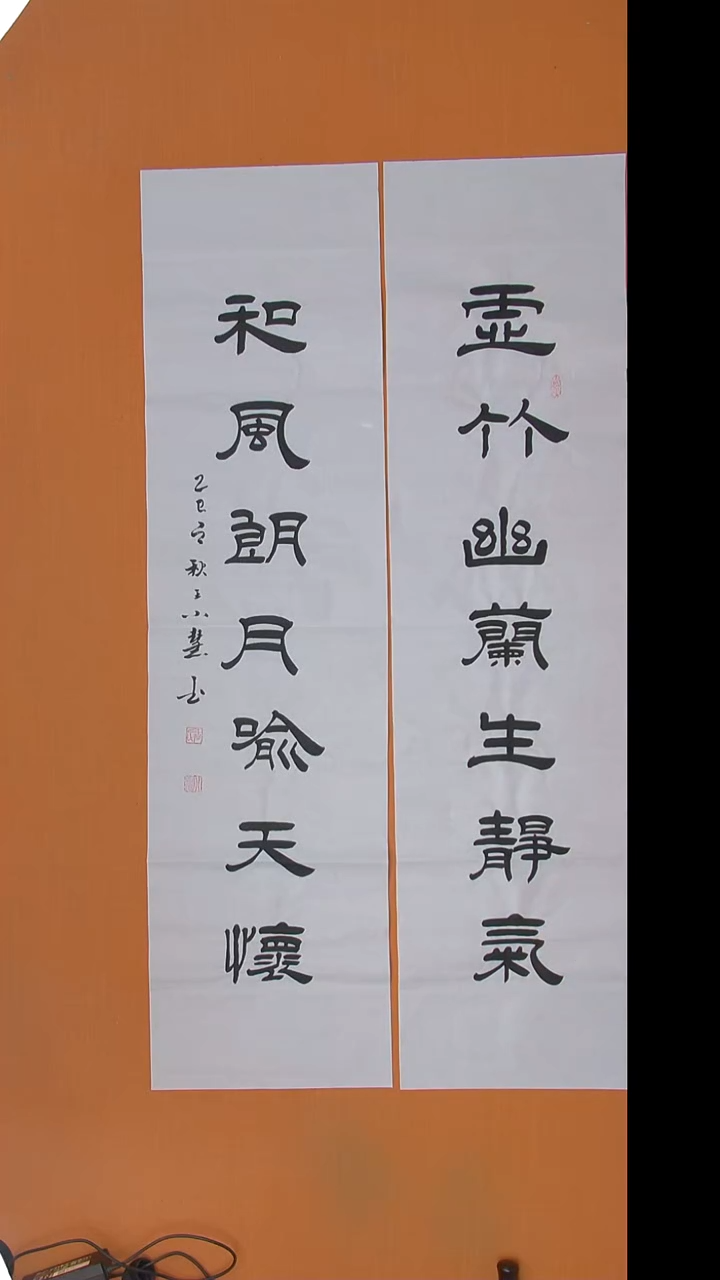 虛竹幽蘭生靜氣
和風朗月喻天懷
乙巳之秋王小慧書